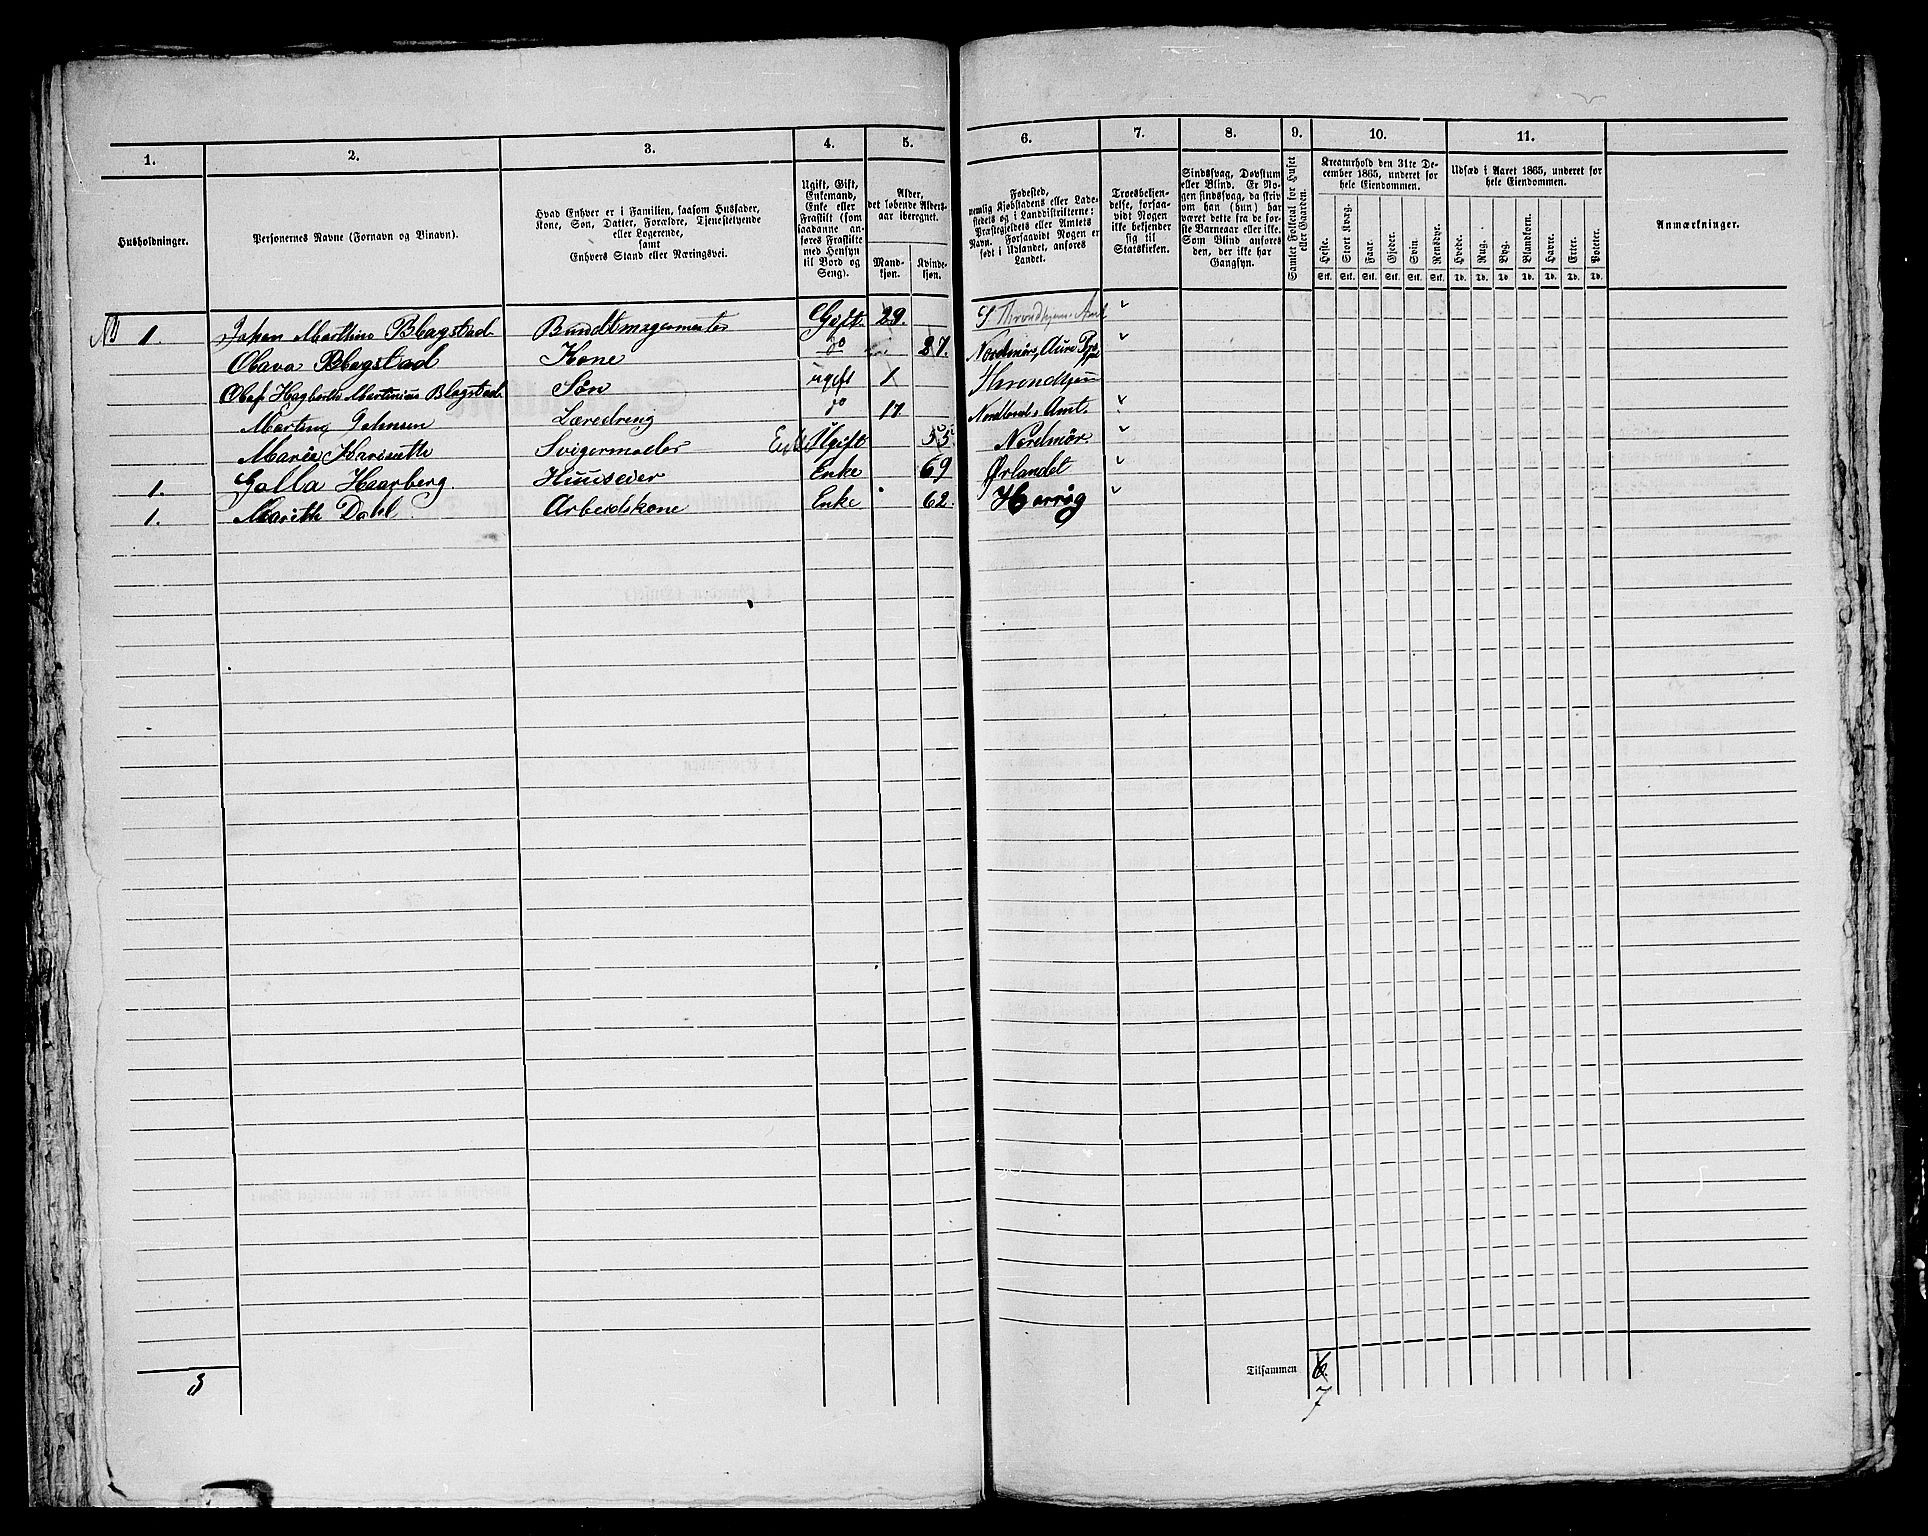 1. 2. 3. 4. 5. 6. 7. 8. 9. 10. 11.
Husholdninger.
Personernes Navne (Fornavn og Binavn).
Hvad Enhver er i Familien, saasom Husfader,
Kone, Søn, Datter, Forældre, Tjenestetyende
eller Logerende,
samt
Enhvers Stand eller Næringsvei.
Ugift, Gift,
Enkemand,
Enke eller
Fraskilt (som
saadanne an-
føres Fraskilte
med Hensyn
til Bord og
Seng).
Alder,
det løbende Alders-
aar iberegnet.
Mand-
kjøn.
Kvinde-
kjøn.
Fødested,
nemlig Kjøbstadens eller Lade-
stedets og i Landdistrikterne:
Præstegjeldets eller Amtets
Navn. Forsaavidt Nogen er
født i Udlandet, anføres
Landet.
Troesbekjen-
delse, forsaa-
vidt Nogen
ikke bekjender
sig til
Statskirken.
Sindssvag, Døvstum
eller Blind. Er No-
gen sindssvag, da skriv
om han (hun) har
været dette fra de før-
ste Barneaar eller ikke.
Som Blind anføres
den, der ikke har
Gangsyn.
Samlet Folketal for Huset
eller Gaarden.
Kreaturhold den 31te De-
cember 1865, underet for
hele Eiendommen.
Heste. Stort Kvæg. Faar. Gjeder. Svin. Rensdyr.
Stk. Stk. Stk. Stk. Stk. Stk.
Udsæd i Aaret 1865, underet for
hele Eiendommen.
Hvede. Rug. Byg. Blandkorn. Havre. Erter. Poteter.
Td. Td. Td. Td. Td. Td. Td.
Anmærkninger.
1. Johan Marthins Blagstad Bundtmagermester Gift. 29. S Throndhjems Amt
Olava Blagstad Kone do 27. Nordmøre, Aure
Olaf Hagbarth Martinius Blagstad Søn ugift 1 Throndhjem
Martins Johnsen Læredreng do 17 Nordlands Amt.
Maria Svigermoder Ugift 55. Nordmør
1. Haarberg Enke 69 Ørlandet
1. Mareth Dahl. Arbeidskone Enke 62.
3
Tilsammen 6.
7